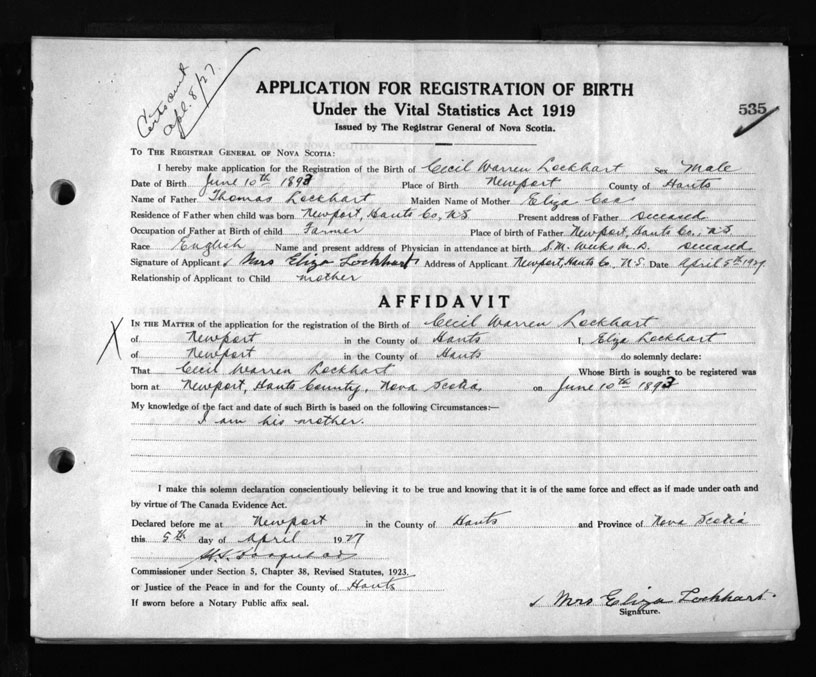 Cert sent
Apl. 8/27.
APPLICATION FOR REGISTRATION OF BIRTH
Under the Vital Statistics Act 1919
535
Issued by The Registrar General of Nova Scotia.
TO THE REGISTRAR GENERAL OF NOVA SCOTIA:
I hereby make application for the Registration of the Birth of Cecil Warren Lockhart Sex Male
Date of Birth June 10th 1893 Place of Birth Newport County of Hants
Name of Father Thomas Lockhart Maiden Name of Mother Eliza
Residence of Father when child was born Newport, Hants Co, N.S Present address of Father Deceased
Occupation of Father at Birth of child Farmer Place of birth of Father Newport, Hants Co., N.S.
Race English Name and present address of Physician in attendance at birth S.M. Weeks M.D. Deceased
Signature of Applicant Mrs Eliza Lockhart Address of Applicant Newport, Hants Co, N.S. Date April 5th 1927.
Relationship of Applicant to Child mother
AFFIDAVIT
X
IN THE MATTER of the application for the registration of the Birth of Cecil Warren Lockhart
of. Newport in the County of Hants I, Eliza Lockhart
of. Newport in the County of Hants do solemnly declare:
That Cecil Warren Lockhart Whose Birth is sought to be registered was
born at Newport, Hants County, Nova Scotia on June 10th 1893
My knowledge of the fact and date of such Birth is based on the following Circumstances:—
I am his mother.
I make this solemn declaration conscientiously believing it to be true and knowing that it is of the same force and effect as if made under oath and
by virtue of The Canada Evidence Act.
Declared before me at Newport in the County of Hants and Province of Nova Scotia
this 5th day of April 1927
Commissioner under Section 5, Chapter 38, Revised Statutes, 1923.
or Justice of the Peace in and for the County of Hants
If sworn before a Notary Public affix seal.
Mrs Eliza Lockhart.
Signature.